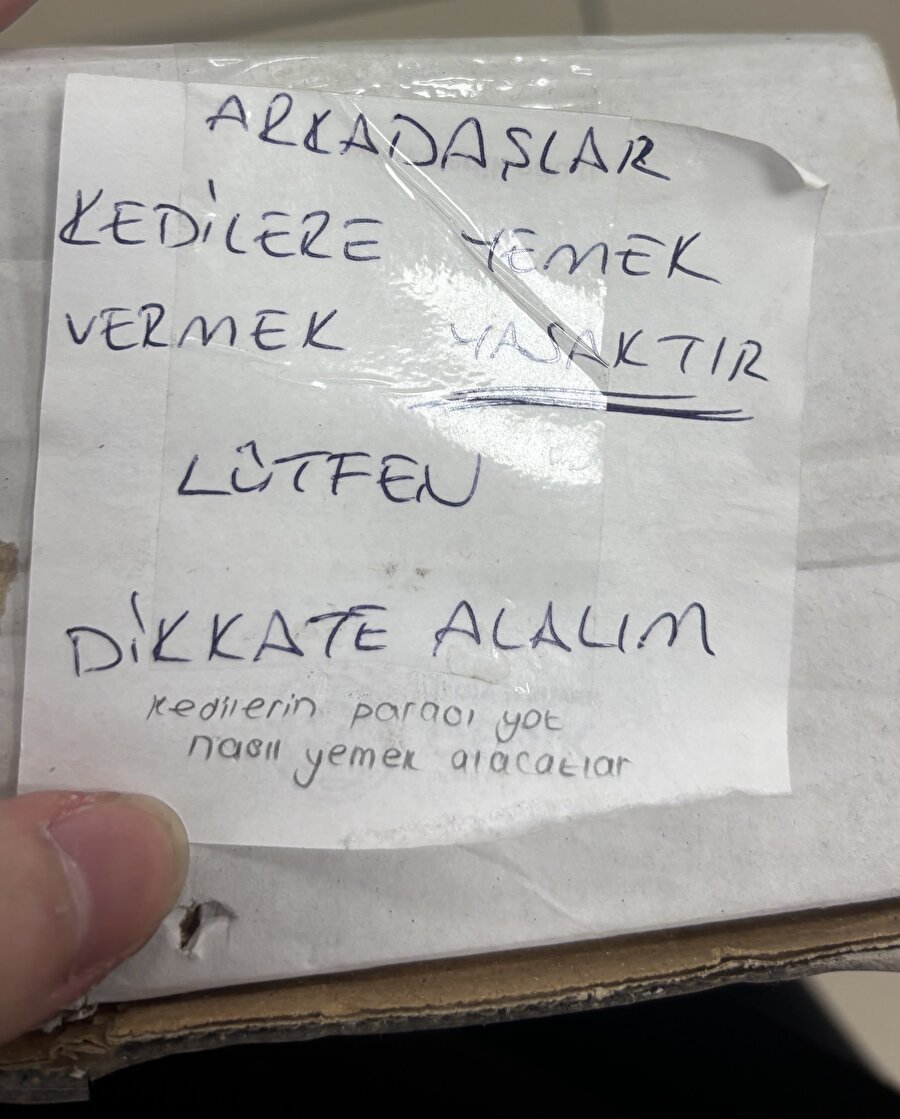 ARKADAŞLAR
KEDİLERE YEMEK
VERMEK YASAKTIR
LÛTFEN
DİKKATE ALALIM
kedilerin parası yok
nasıl yemek alacaklar